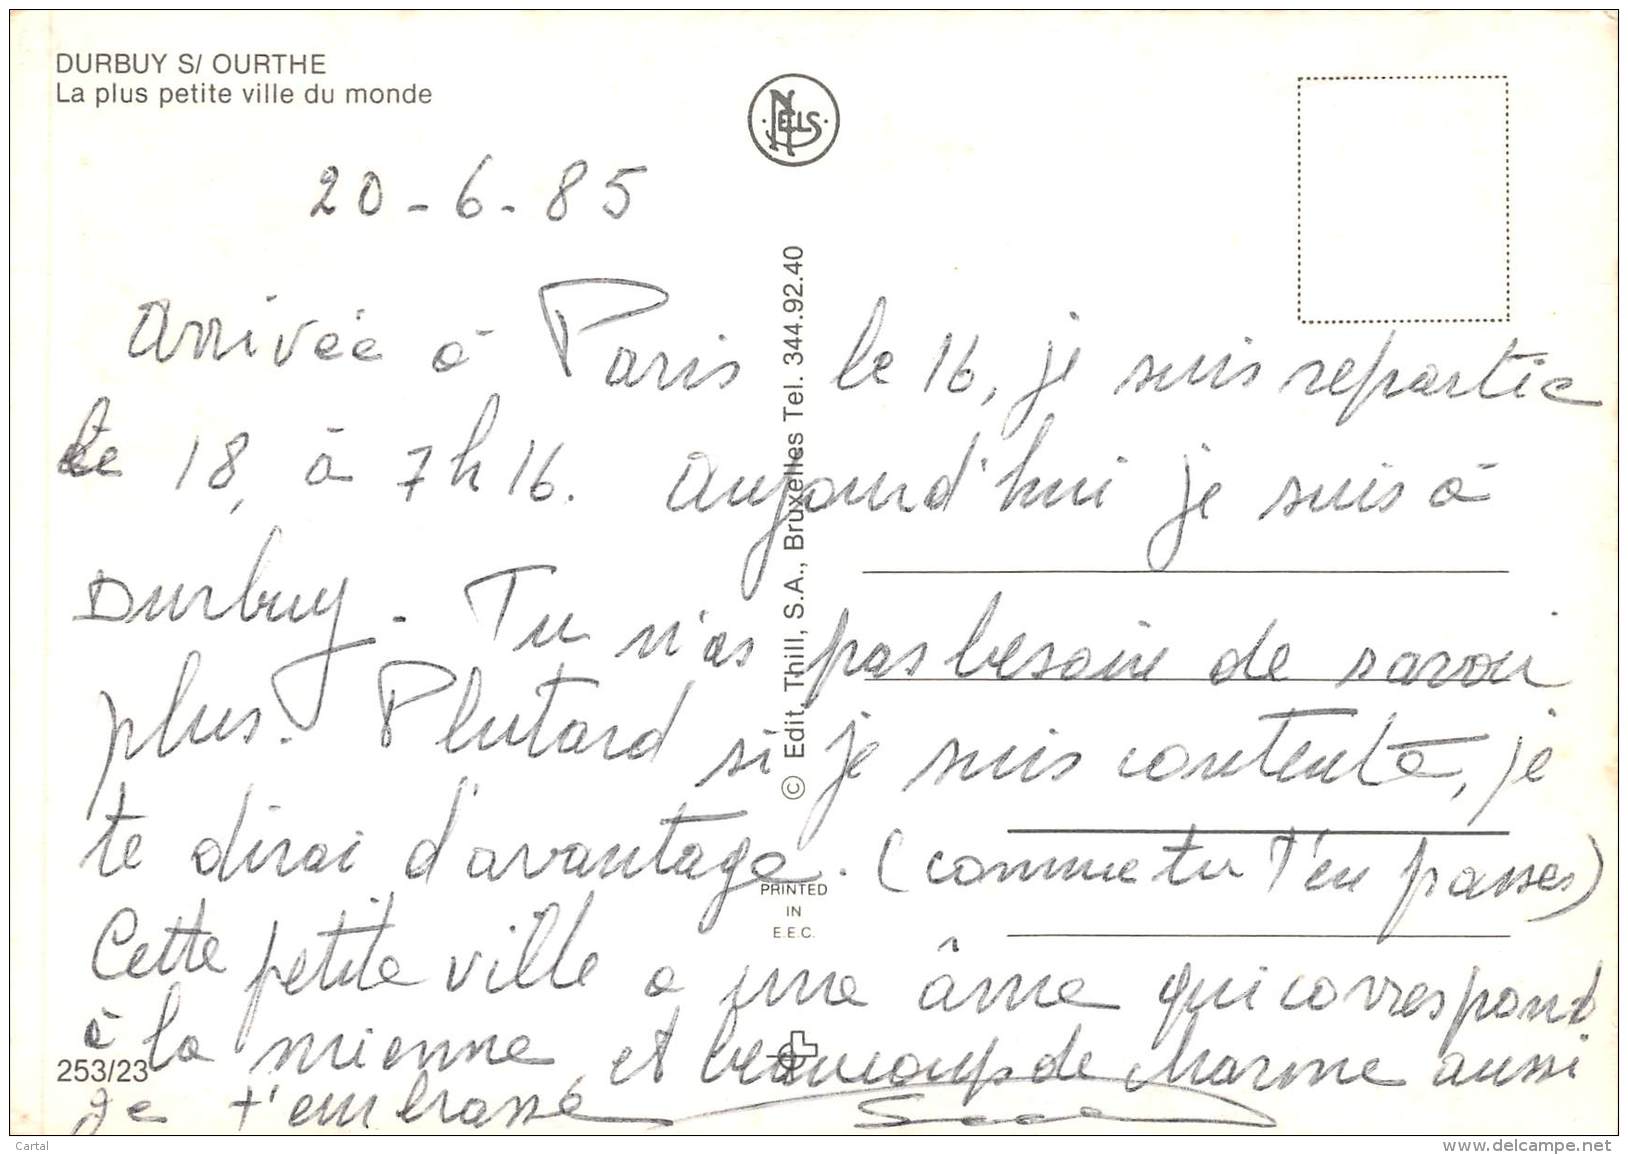 DURBUY S/ OURTHE
La plus petite ville du monde
NELLS
20-6-85
Arrivée à Paris le 16, je suis repartie
le 18, à 7h16. Aujourd'hui je suis à
Durbuy. Tu n'as pas besoin de savoir
plus. Plutard si je suis contente, je
te dirai d'avantage. (comme tu t'en passes)
Cette petite ville a une âme qui correspond
à la mienne et beaucoup de charme aussi
Je t'embrasse
© Edit, Thill, S.A., Bruxelles Tel. 344.92.40
PRINTED
IN
E.E.C.
253/23
Cartal
www.delcampe.net